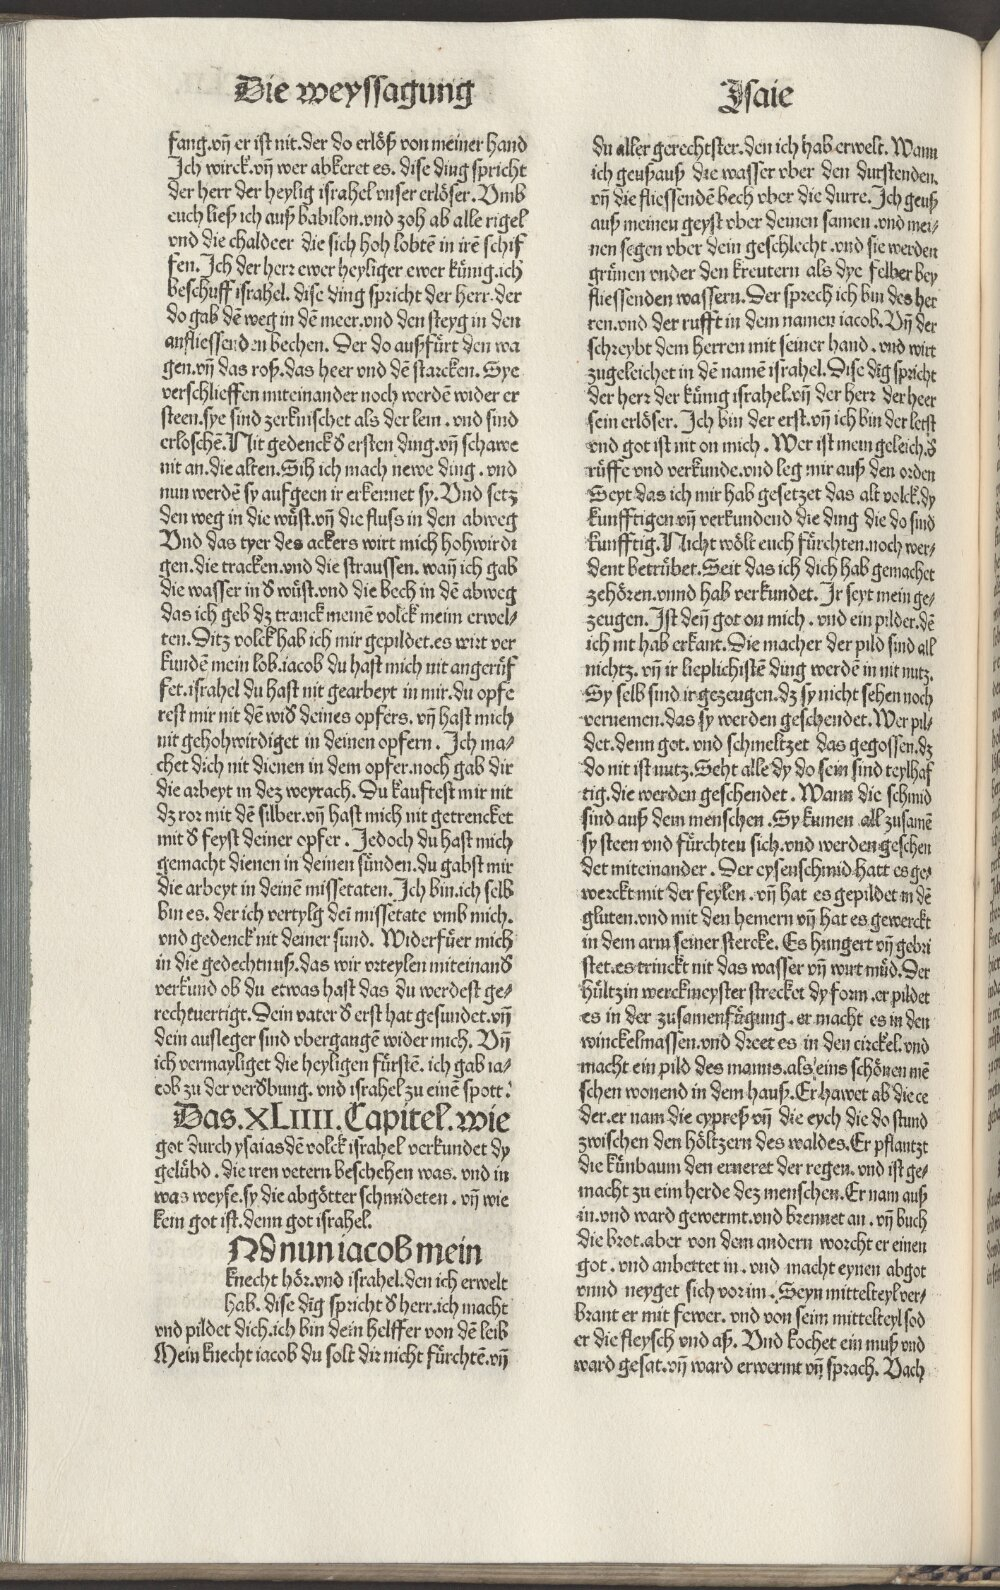 Die weyssagung
Jsaie
fang.vñ er ist nit.der do erlöß von meiner hand
Jch wirck.vñ wer abkeret es. dise ding spricht
der herr der heylig israhel vnser erlöser. Vmb
euch ließ ich auß babilon.vnd zoh ab alle rigel
vnd die chaldeer die sich hoh lobtē in irē schif
fen. Jch der herr ewer heyliger ewer künig.ich
beschuff israhel. dise ding spricht der herr. der
do gab dē weg in dē meer.vnd den steyg in den
anfliessenden bechen. Der do außfürt den wa
gen.vñ das roß.das heer vnd dē starcken. Sye
verschlieffen miteinander noch werdē wider er
steen.sye sind zerknischet als der lein . vnd sind
erloschē. Nit gedenck d̄ ersten ding.vñ schawe
nit an.die alten. Sih ich mach newe ding . vnd
nun werdē sy aufgeen ir erkennet sy. Vnd setz
den weg in die wüst.vñ die fluss in den abweg
Vnd das tyer des ackers wirt mich hohwirdi
gen.die tracken.vnd die straussen. wañ ich gab
die wasser in d̄ wüst.vnd die bech in dē abweg
das ich geb dz tranck meinē volck meim erwel⸗
ten. Ditz volck hab ich mir gepildet.es wirt ver
kundē mein lob.iacob du hast mich nit angerüf
fet.israhel du hast nit gearbeyt in mir.du opfe
rest mir nit dē wid̄ deines opfers. vñ hast mich
nit gehohwirdiget in deinen opfern . Jch ma⸗
chet dich nit dienen in dem opfer.noch gab dir
die arbeyt in dez weyrach. Du kauftest mir nit
dz ror mit dē silber.vñ hast mich nit getrencket
mit d̄ feyst deiner opfer . Jedoch du hast mich
gemacht dienen in deinen sünden.du gabst mir
die arbeyt in deinē missetaten. Jch bin.ich selb
bin es. der ich vertylg dei missetate vmb mich.
vnd gedenck nit deiner sund. Widerfüer mich
in die gedechtnuß.das wir vrteylen miteinand̄
verkund ob du etwas hast das du werdest ge⸗
rechtuertigt. Dein vater d̄ erst hat gesundet.vñ
dein ausleger sind vbergangē wider mich. Vñ
ich vermayliget die heyligen fürstē. ich gab ia⸗
cob zu der verd̄bung. vnd israhel zu einē spott.
Das.XLIIII.Capitel.wie
got durch ysaias dē volck israhel verkundet dy
gelübd . die iren vetern beschehen was. vnd in
was weyse.sy die abgötter schmideten . vñ wie
kein got ist.denn got israhel.
Nd nun iacob mein
knecht hör.vnd israhel.den ich erwelt
hab. dise dīg spricht d̄ herr.ich macht
vnd pildet dich.ich bin dein helffer von dē leib
Mein knecht iacob du solt dir nicht fürchtē.vñ
du aller gerechtster.den ich hab erwelt. Wann
ich geuß auß die wasser vber den durstenden.
vñ die fliessendē bech vber die durre. Jch geuß
auß meinen geyst vber deinen samen .vnd mei⸗
nen segen vber dein geschlecht .vnd sie werden
grünen vnder den kreutern als dye felber bey
fliessenden wassern. Der sprech ich bin des her
ren.vnd der rufft in dem namen iacob. Vñ der
schreybt dem herren mit seiner hand . vnd wirt
zugeleichet in dē namē israhel. Dise dīg spricht
der herr der künig israhel.vñ der herr der heer
sein erlöser. Jch bin der erst.vñ ich bin der letst
vnd got ist nit on mich . Wer ist mein geleich.d̄
rüffe vnd verkunde.vnd leg mir auß den orden
Seyt das ich mir hab gesetzet das alt volck.dy
kunfftigen vñ verkundend die ding die do sind
kunfftig. Nicht wölt euch fürchten.noch wer⸗
dent betrübet. Seit das ich dich hab gemachet
zehören.vnnd hab verkundet. Jr seyt mein ge⸗
zeugen. Jst deñ got on mich . vnd ein pilder.dē
ich nit hab erkant. Die macher der pild sind all
nichtz. vñ ir lieplichistē ding werdē in nit nutz.
Sy selb sind ir gezeugen.dz sy nicht sehen noch
vernemen.das sy werden geschendet. Wer pil⸗
det.denn got. vnd schmeltzet das gegossen.dz
do nit ist nutz. Seht alle dy do sein sind teylhaf
tig.die werden geschendet . Wann die schmid
sind auß dem menschen . Sy kumen all zusamē
sy steen vnd fürchten sich.vnd werden geschen
det miteinander . Der eysenschmid hatt es ge⸗
werckt mit der feylen . vñ hat es gepildet in dē
gluten.vnd mit den hemern vñ hat es gewerckt
in dem arm seiner stercke. Es hungert vñ gebri
stet.es trinckt nit das wasser vñ wirt müd. Der
hültzin werckmeyster strecket dy form .er pildet
es in der zusamenfügung. er macht es in den
winckelmassen.vnd dreet es in den circkel.vnd
macht ein pild des manns.als eins schönen mē
schen wonend in dem hauß. Er hawet ab die ce
der.er nam die cypreß vñ die eych die do stund
zwischen den höltzern des waldes. Er pflantzt
die künbaum den erneret der regen. vnd ist ge⸗
macht zu eim herde dez menschen. Er nam auß
in.vnd ward gewermt.vnd brennet an . vñ buch
die brot.aber von dem andern worcht er einen
got . vnd anbettet in . vnd macht eynen abgot
vnnd neyget sich vor im . Seyn mittelteyl ver⸗
brant er mit fewer. vnd von seim mittelteyl sod
er die fleysch vnd aß. Vnd kochet ein muß vnd
ward gesat.vñ ward erwermt vñ sprach. Vach